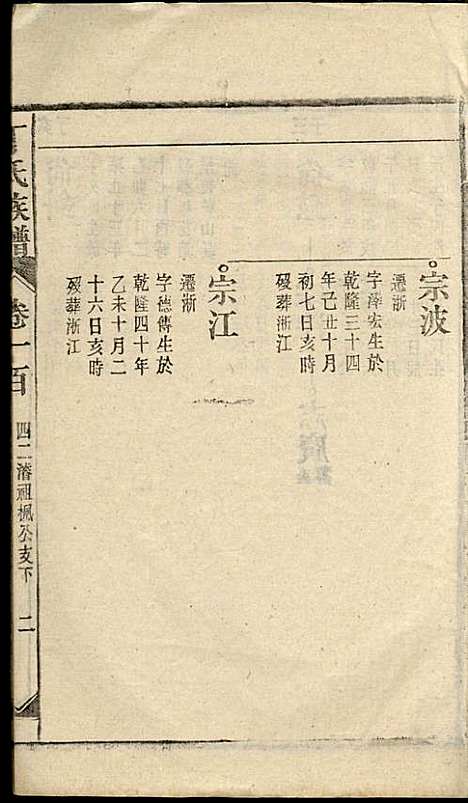 宗波
遷浙
字澤宏生於
乾隆三十四
年己丑十月
初七日亥時
歿葬浙江
宗江
遷浙
字德傳生於
乾隆四十年
乙未十月二
十六日亥時
歿葬浙江
氏族譜
卷一百
四二濬祖楓公支下
二